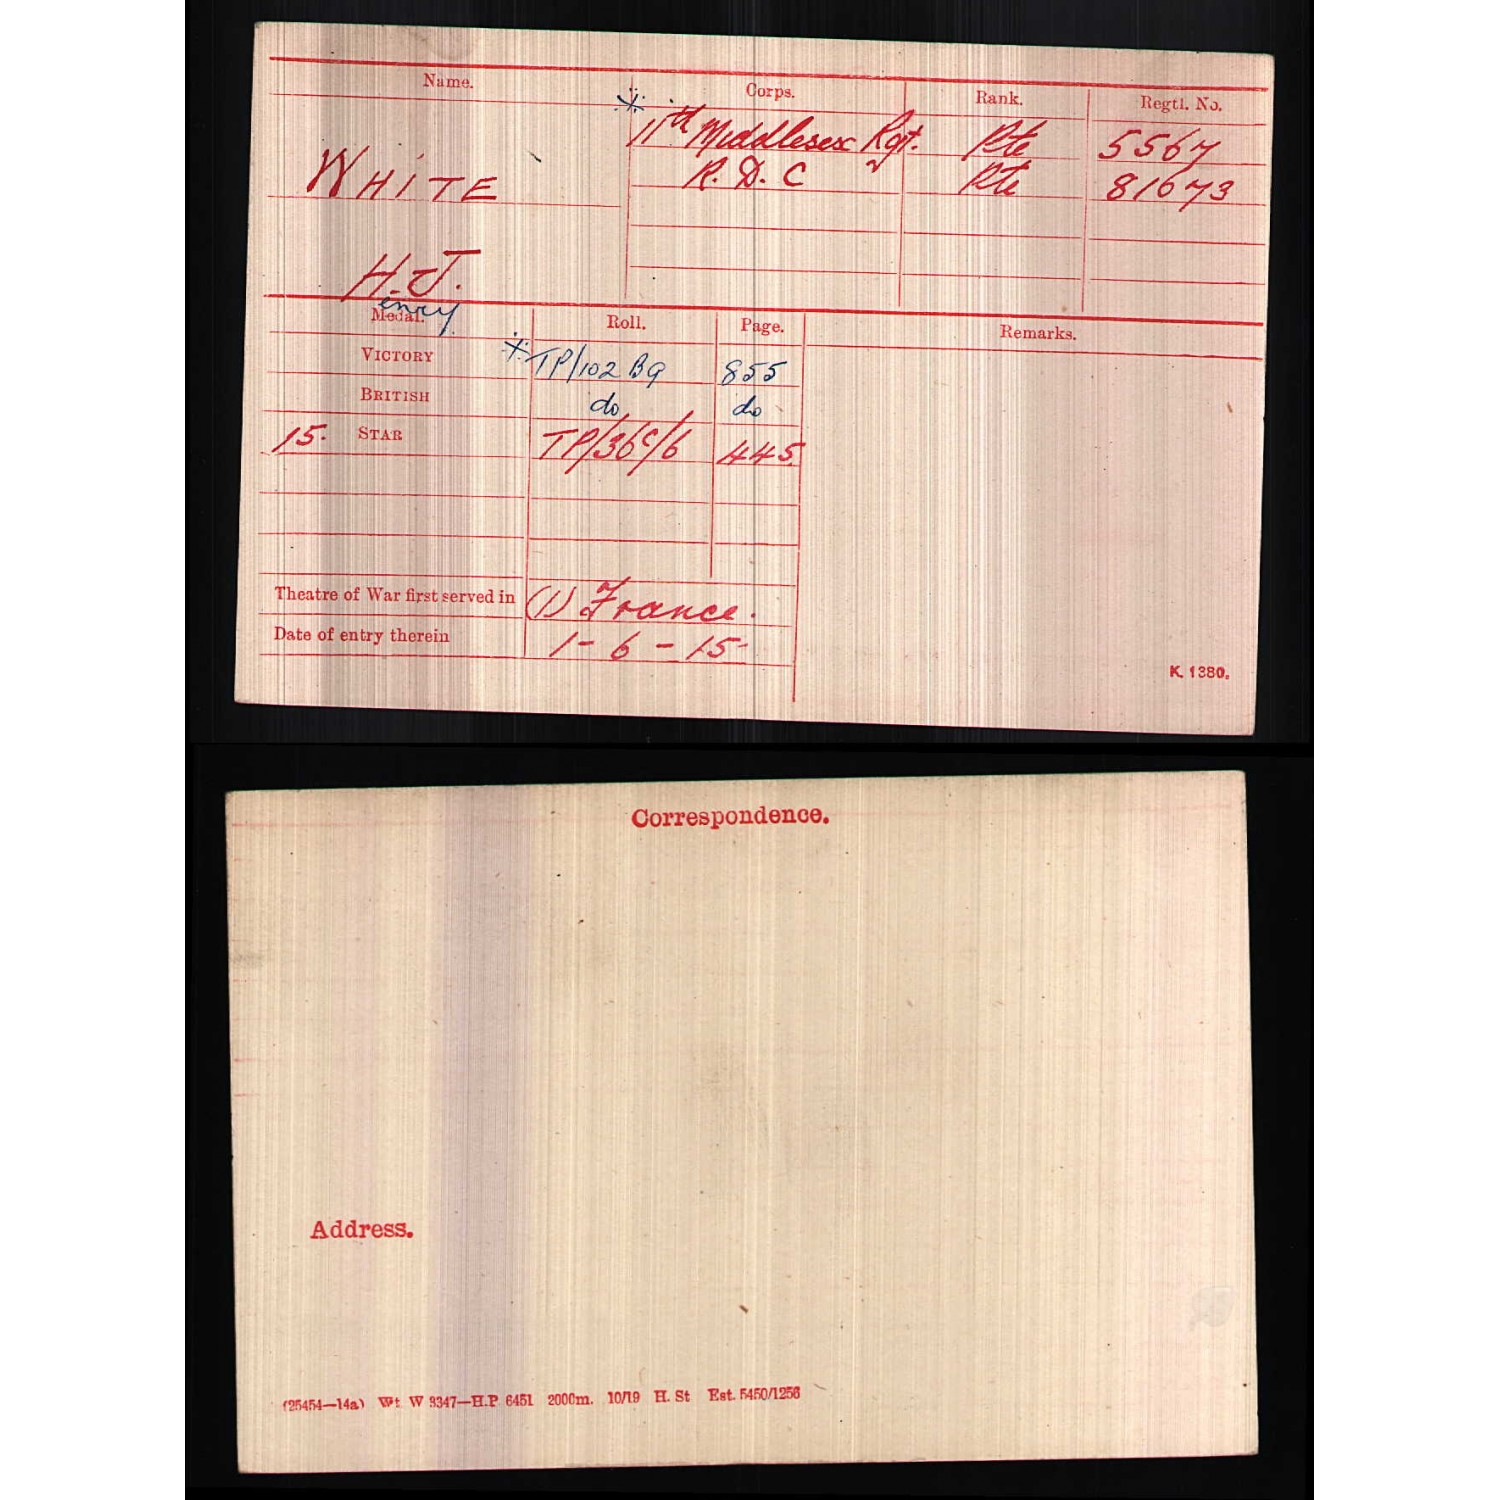 Name. Corps. Rank. Regtl. No.
* 11th Middlesex Rgt. Pte 5567
WHITE R.D.C Pte 81673
H.J.
enry
Medal. Roll. Page. Remarks.
VICTORY * TP/102 B9 855
BRITISH do do
15. STAR TP/36C/6 445
Theatre of War first served in (1) France.
Date of entry therein 1-6-15
K. 1380.
Correspondence.
Address.
(25454—14a) Wt. W 3347—H.P 6451 2000m. 10/19 H. St Est. 5450/1256